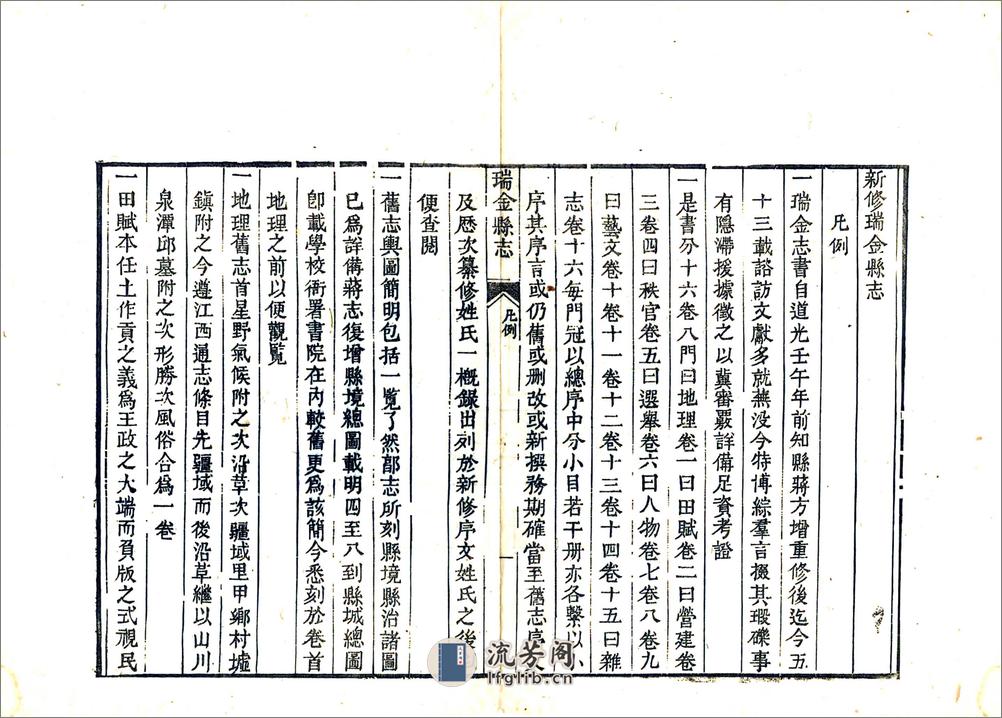 新修瑞金縣志
凡例
一瑞金志書自道光壬午年前知縣蔣方增重修後迄今五
十三載諮訪文獻多就蕪没今特博綜羣言掇其瑕礫事
有隱滯援據徵之以冀審覈詳備足資考證
一是書分十六卷八門曰地理卷一曰田賦卷二曰營建卷
三卷四曰秩官卷五曰選舉卷六曰人物卷七卷八卷九
曰藝文卷十卷十一卷十二卷十三卷十四卷十五曰雜
志卷十六每門冠以總序中分小目若干册亦各繫以小
序其序言或仍舊或刪改或新撰務期確當至舊志序
瑞金縣志
凡例
一
及歷次纂修姓氏一概錄出列於新修序文姓氏之後
便查閱
一舊志輿圖簡明包括一覽了然郜志所刻縣境縣治諸圖
已爲詳備蔣志復增縣境總圖載明四至八到縣城總圖
卽載學校衙署書院在內較舊更爲該簡今悉刻於卷首
地理之前以便觀覧
一地理舊志首星野氣候附之次沿革次疆域里甲鄉村墟
鎭附之今遵江西通志條目先疆域而後沿革繼以山川
泉潭邱墓附之次形勝次風俗合爲一卷
一田賦本任土作貢之義爲王政之大端而負版之式視民
流芳阁
lfglib.cn